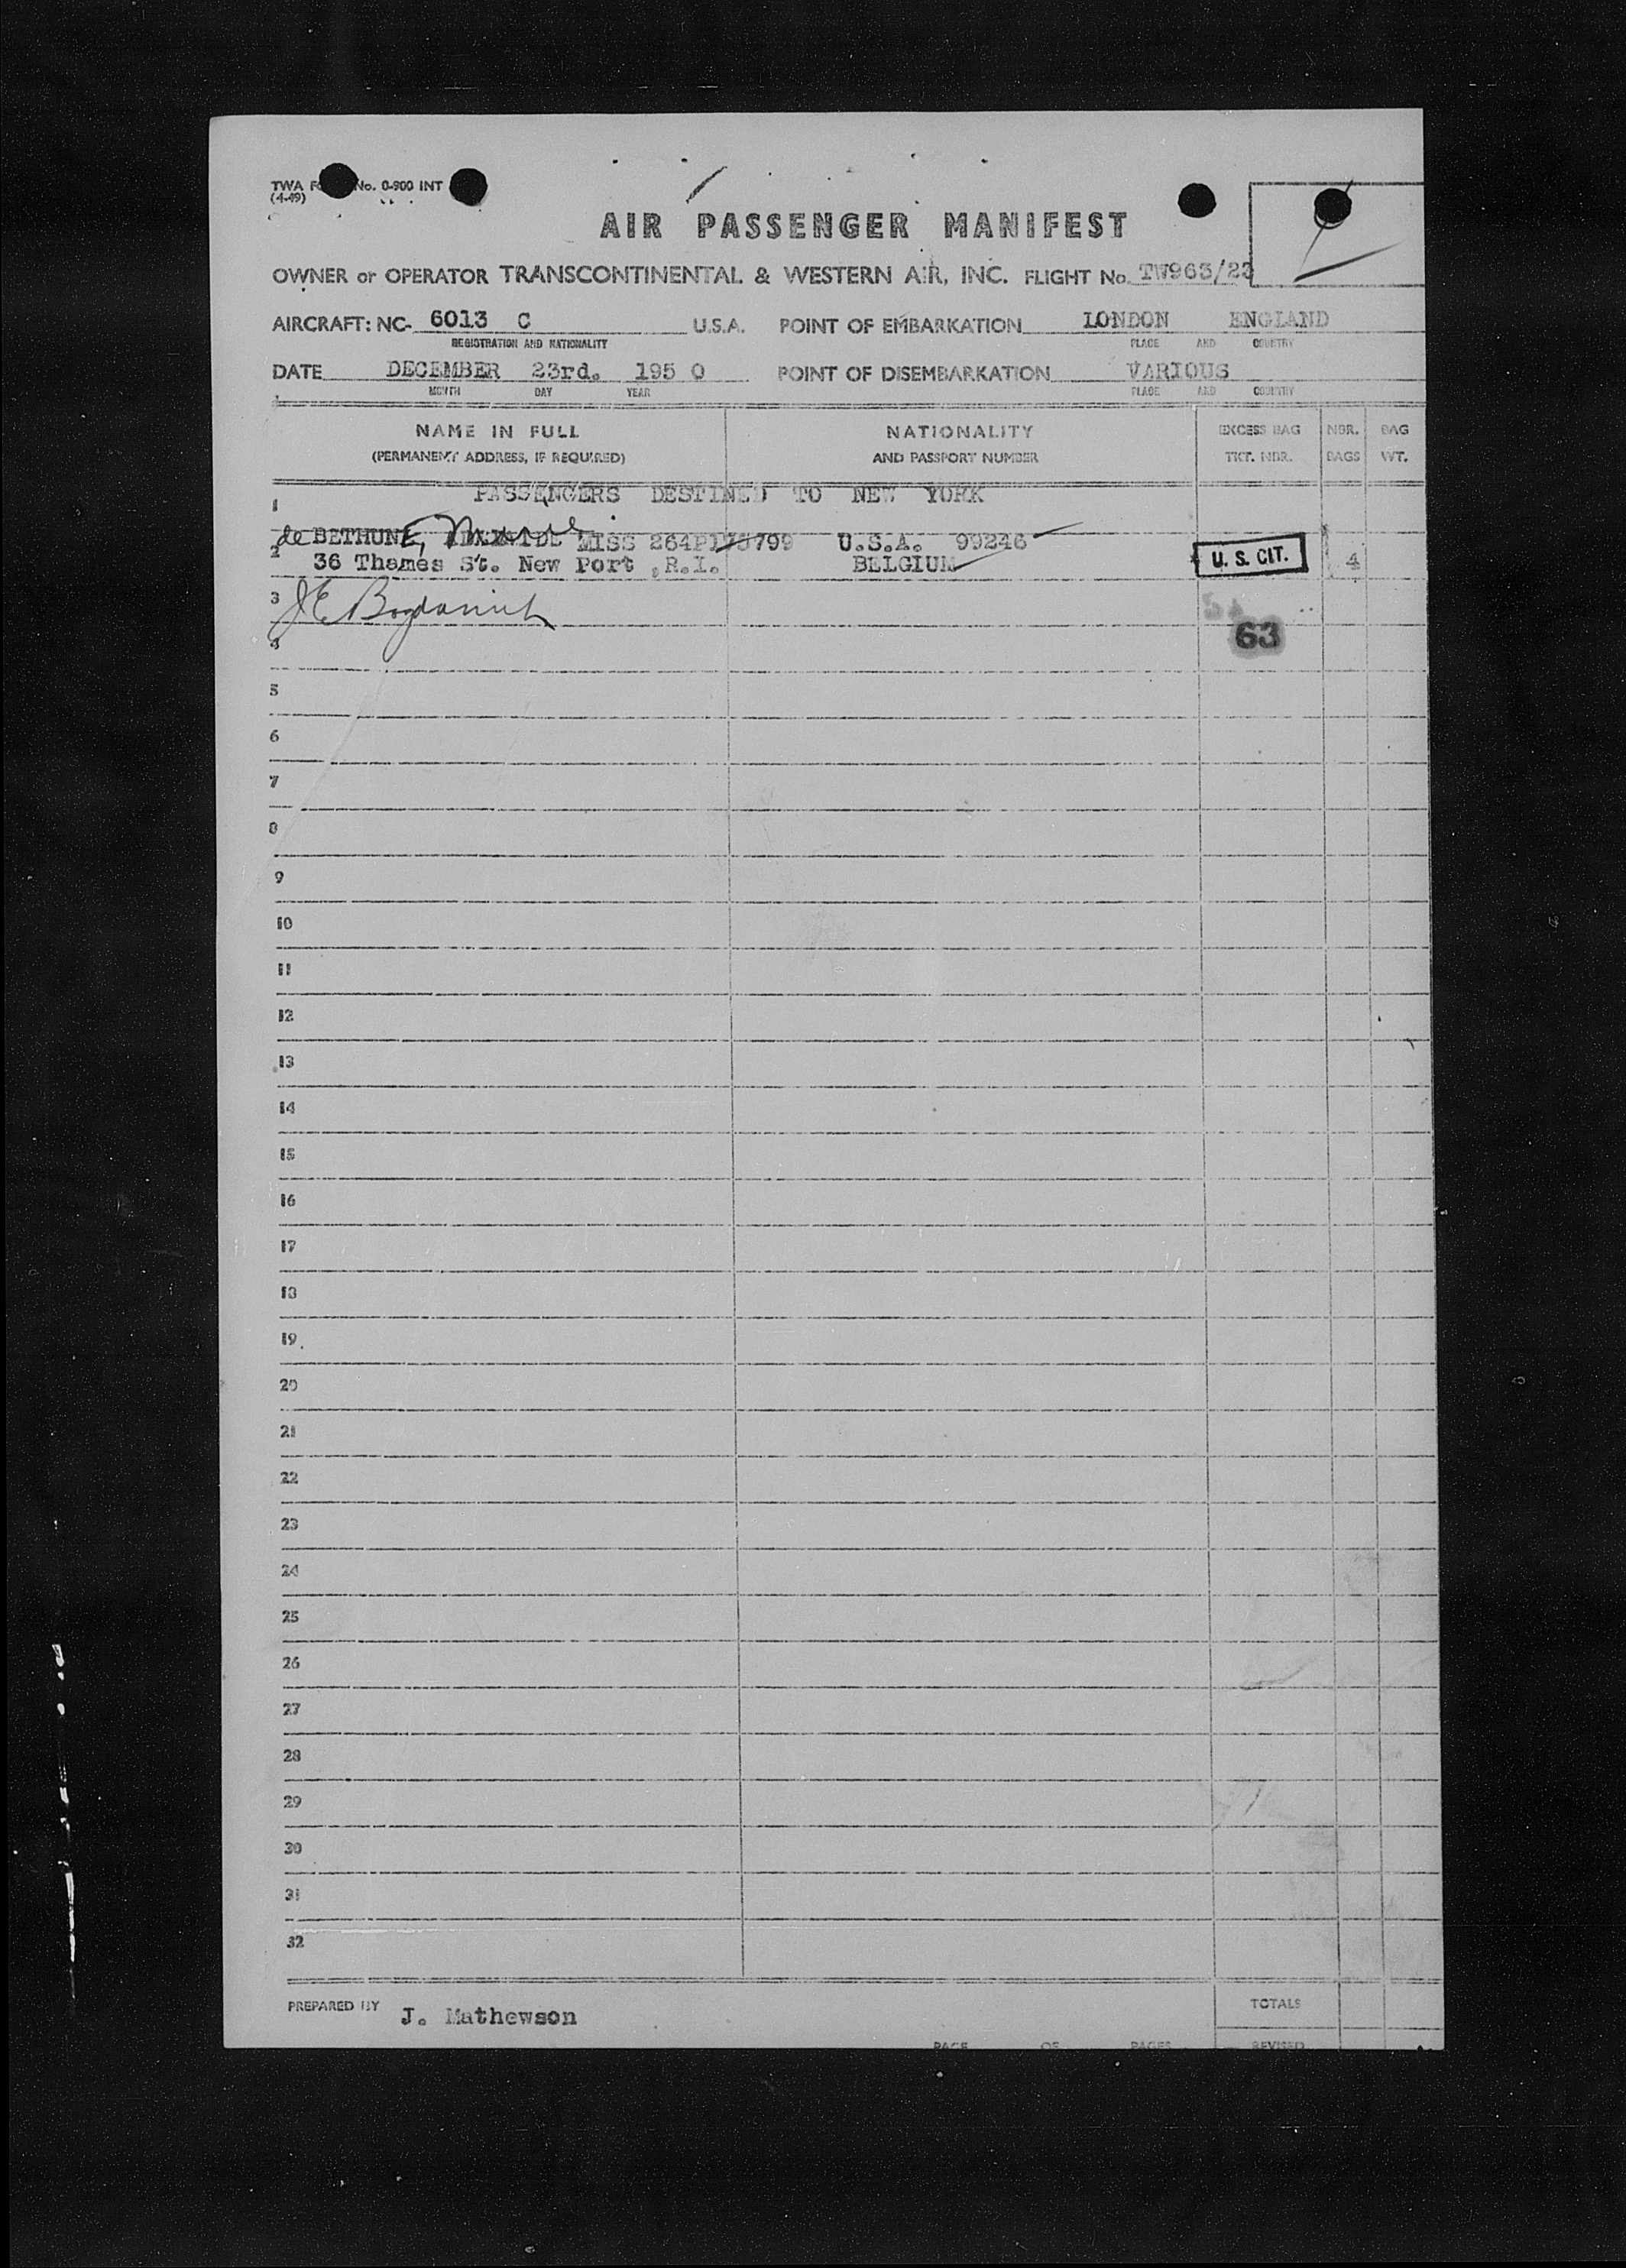 TWA No. 0-900 INT
(4-49)
AIR PASSENGER MANIFEST
OWNER or OPERATOR TRANSCONTINENTAL & WESTERN AIR, INC. FLIGHT No. TW963/23
AIRCRAFT: NC- 6013 C U.S.A. POINT OF EMBARKATION LONDON ENGLAND
REGISTRATION AND NATIONALITY PLACE AND COUNTRY
DATE DECEMBER 23rd. 195 0 POINT OF DISEMBARKATION VARIOUS
MONTH DAY YEAR PLACE AND COUNTRY
NAME IN FULL NATIONALITY EXCESS BAG NBR. BAG
(PERMANENT ADDRESS, IF REQUIRED) AND PASSPORT NUMBER TKT. NBR. BAGS WT.
1 PASSENGERS DESTINED TO NEW YORK
de BETHUNE, MISS U.S.A. 99246
2 36 Thames St. New Port ,R.I. BELGIUM U. S. CIT. 4
3 J E
63
4
5
6
7
8
9
10
11
12
13
14
15
16
17
18
19
20
21
22
23
24
25
26
27
28
29
30
31
32
PREPARED BY J. Mathewson TOTALS
PAGE OF PAGES REVISED